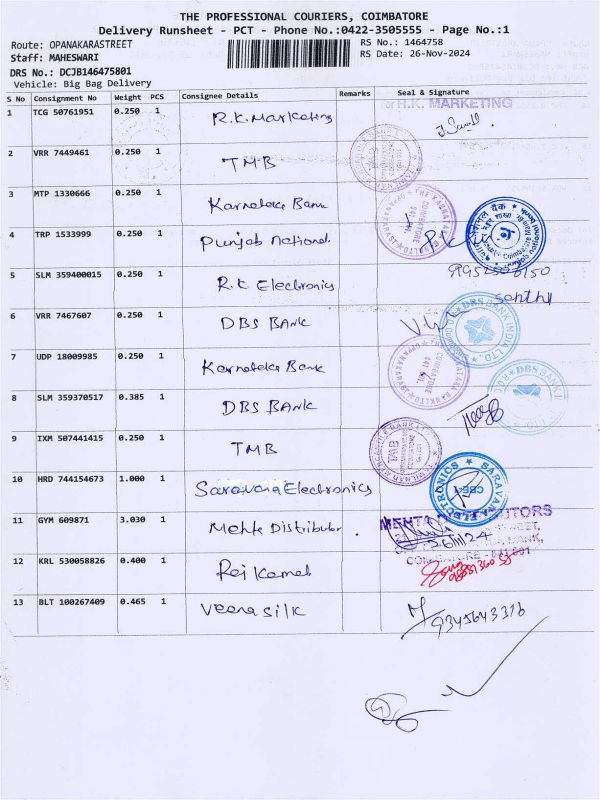 THE PROFESSIONAL COURIERS, COIMBATORE
Delivery Runsheet - PCT - Phone No.:0422-3505555 - Page No.:1
Route: OPANAKARASTREET RS No.: 1464758
Staff: MAHESWARI RS Date: 26-Nov-2024
DRS No.: DCJB146475801
Vehicle: Big Bag Delivery
S No Consignment No Weight PCS Consignee Details Remarks Seal & Signature
1 TCG 50761951 0.250 1 R.K. Marketing For R.K. MARKETING
2 VRR 7449461 0.250 1 TMB
3 MTP 1330666 0.250 1 Karnataka Bank
4 TRP 1533999 0.250 1 Punjab National
5 SLM 359400015 0.250 1 R.K Electronics
6 VRR 7467607 0.250 1 DBS BANK DBS BANK INDIA LTD.
7 UDP 18009985 0.250 1 Karnataka Bank
8 SLM 359370517 0.385 1 DBS BANK
9 IXM 507441415 0.250 1 TMB
10 HRD 744154673 1.000 1 Saravana Electronics SARAVANA ELECTRONICS
11 GYM 609871 3.030 1 Mehta Distributor MEHTA
26/11/24
12 KRL 530058826 0.400 1
13 BLT 100267409 0.465 1 Veena silk 9345643316